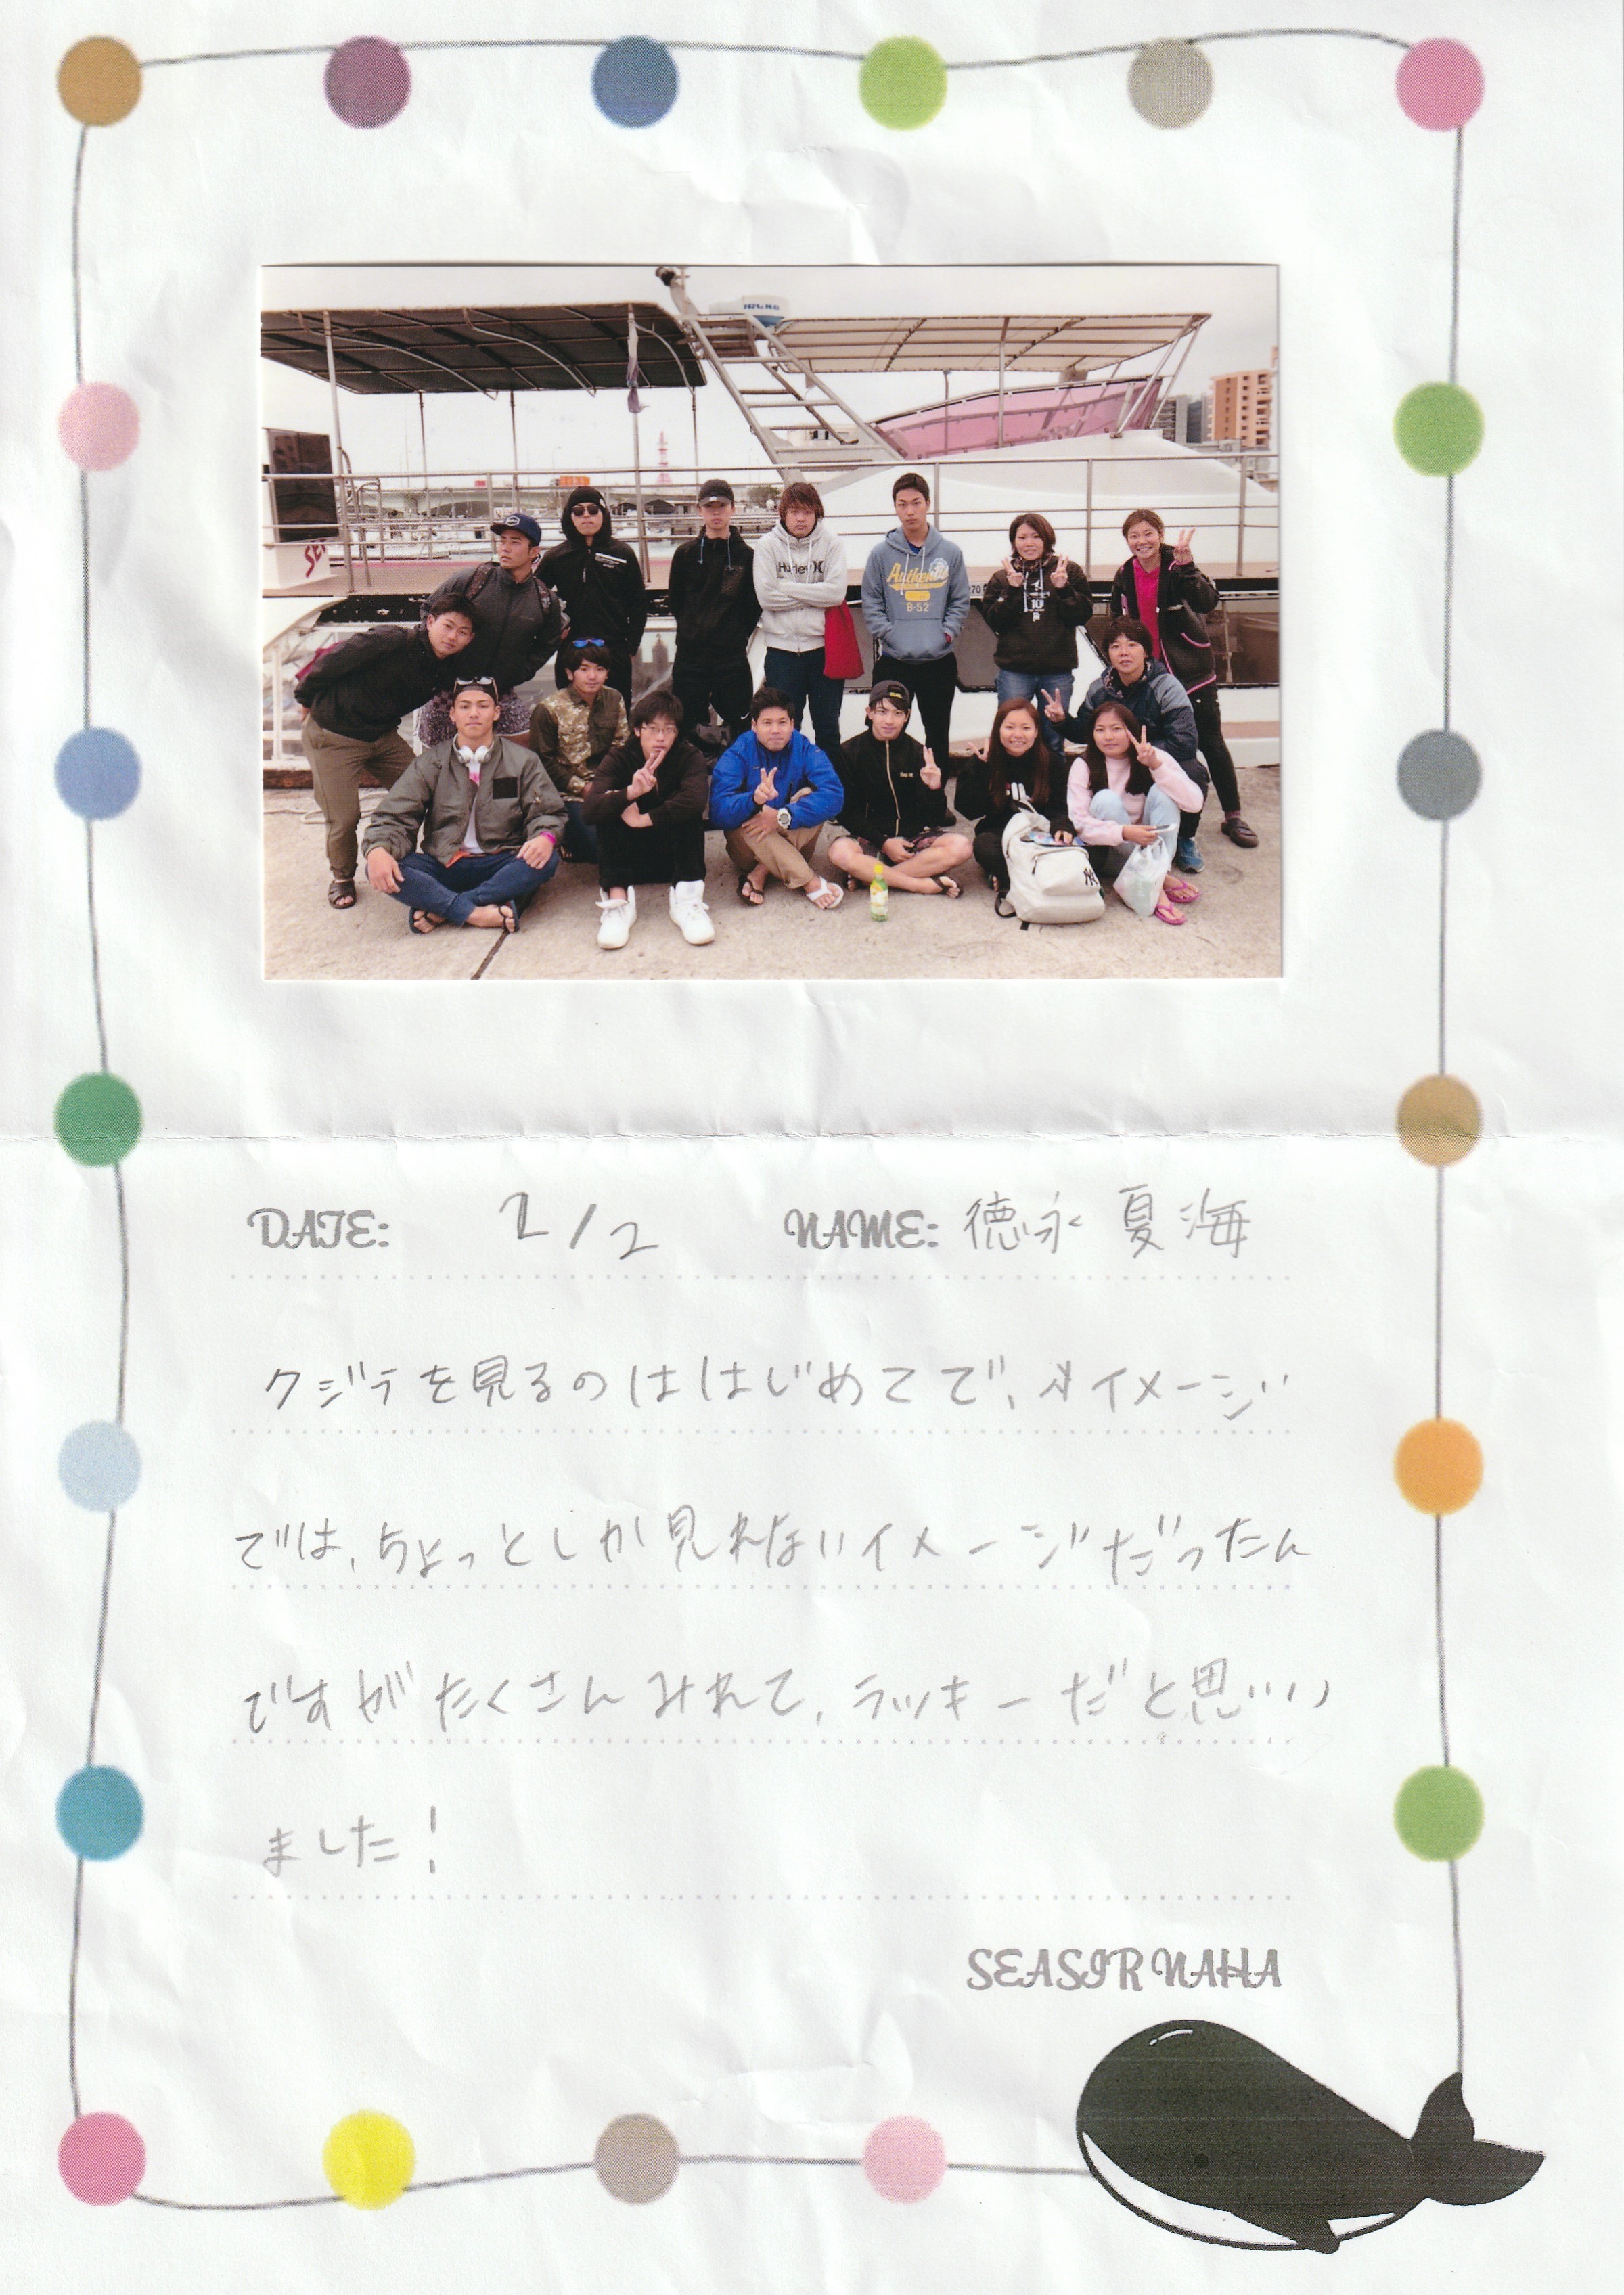 Hurley
Authentic
B-52
DATE: 2/2 NAME: 徳永 夏海
クジラを見るのははじめてで、イメージ
では、ちょっとしか見れないイメージだったん
ですがたくさんみれて、ラッキーだと思いい
ました!
SEASIR NAHA